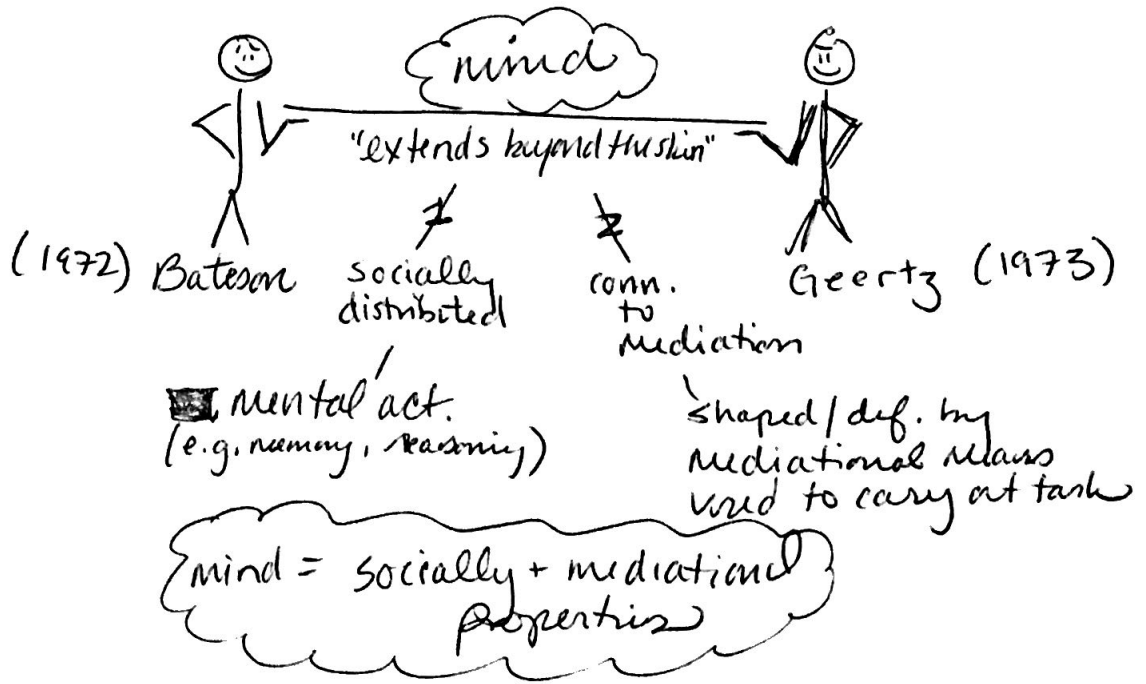 mind
"extends beyond the skin"
1
2
(1972) Bateson
socially
distributed
conn.
to
mediation
Geertz (1973)
mental act.
(e.g, memory, reasoning)
shaped/def. by
mediational means
used to carry out task
mind = socially + mediational
properties